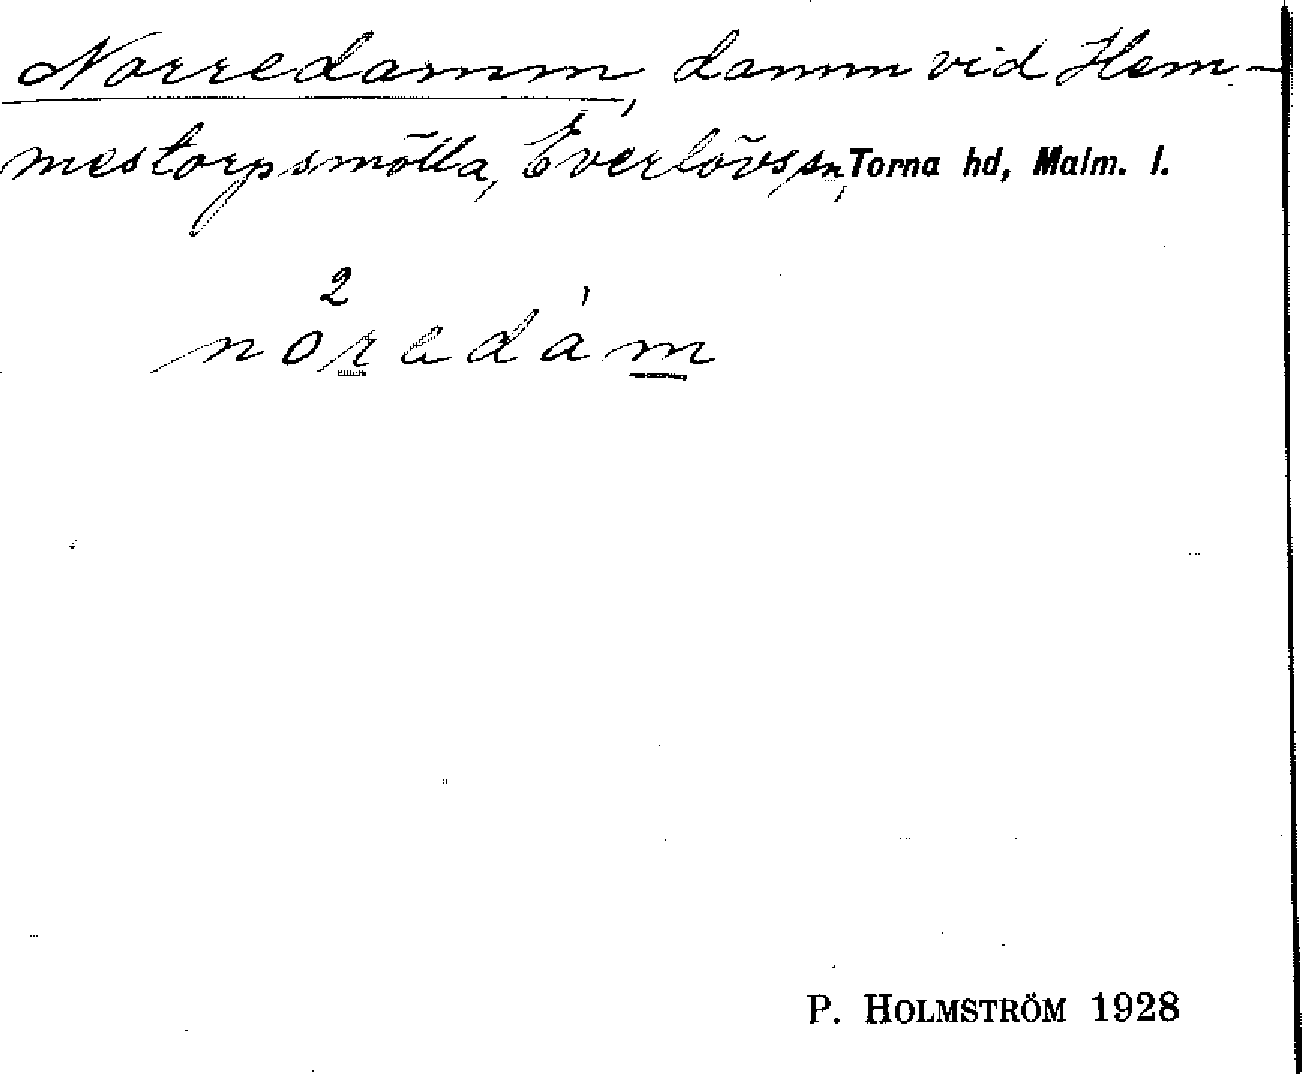 Norredamm, damm vid Hem-
mestorpsmölla, Everlövs sn, Torna hd, Malm. l.
2
nöredàm
P. HOLMSTRÖM 1928